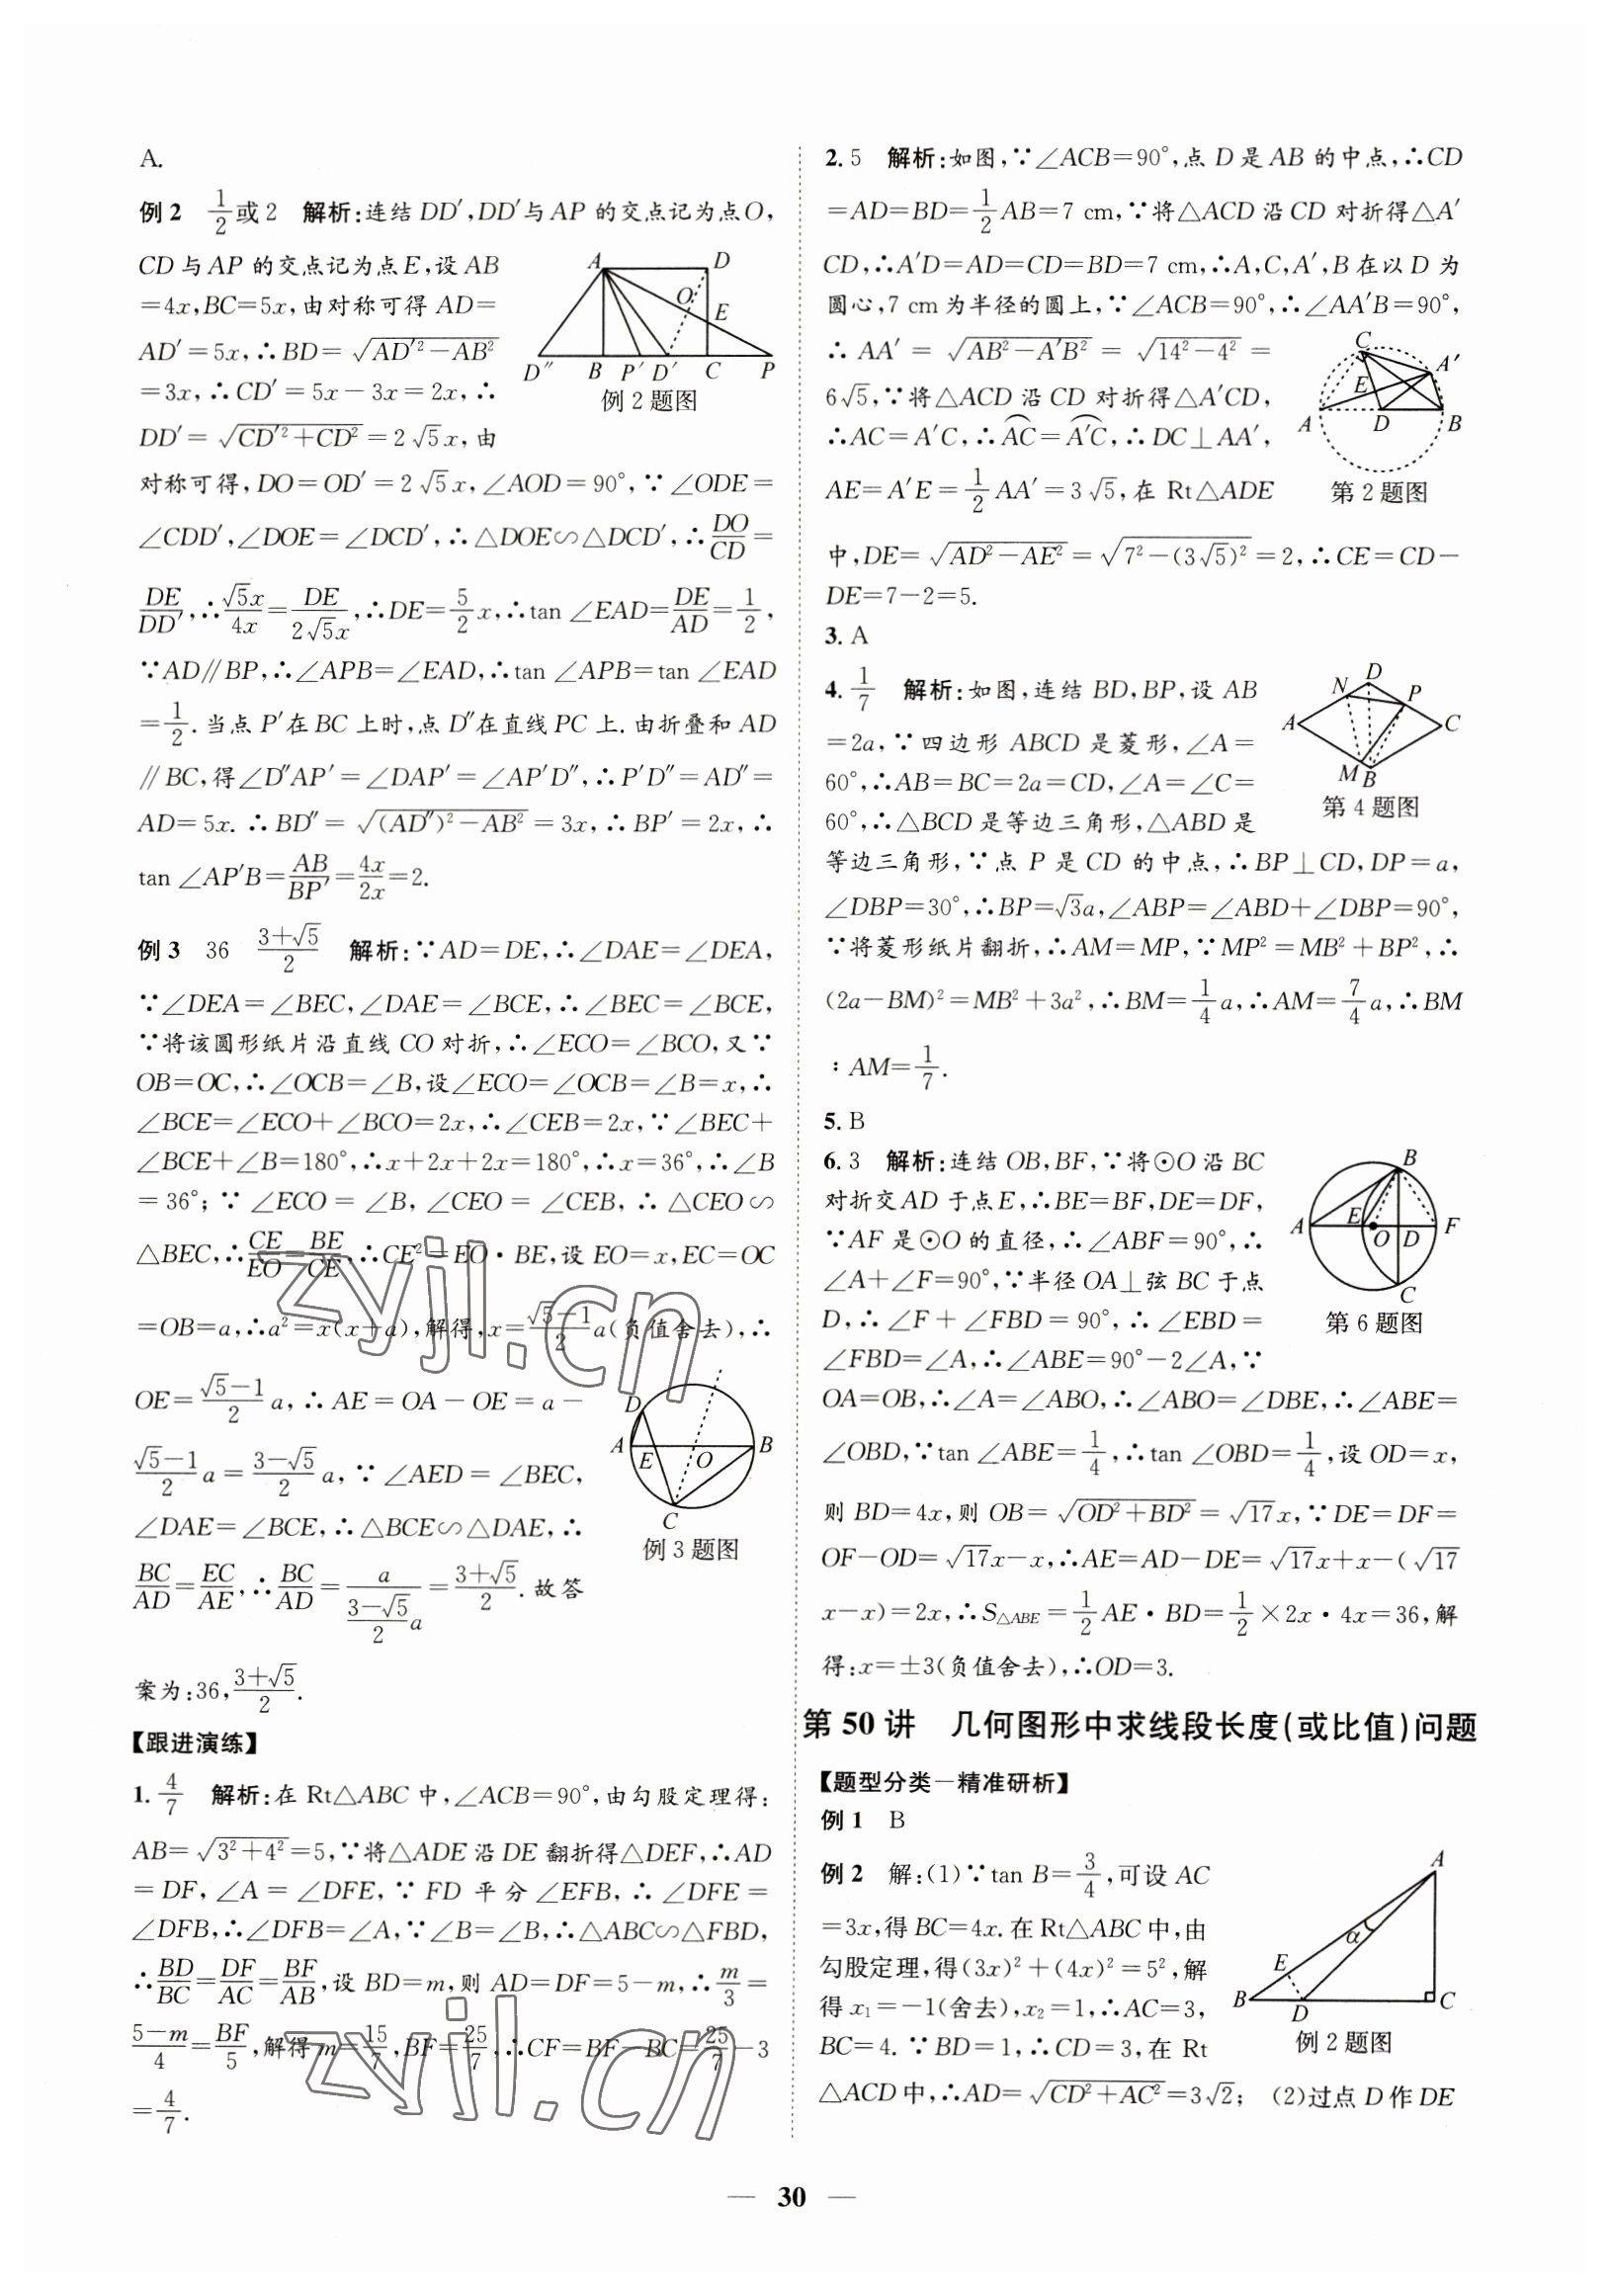 A.
例2 1/2或2 解析:连结DD′,DD′与AP的交点记为点O,
CD与AP的交点记为点E,设AB
=4x,BC=5x,由对称可得AD=
AD′=5x,∴BD=√(AD′²-AB²)
=3x,∴CD′=5x-3x=2x,∴
DD′=√(CD′²+CD²)=2√5x,由
A D O E D″ B P′ D′ C P
例2题图
对称可得,DO=OD′=2√5x,∠AOD=90°,∵∠ODE=
∠CDD′,∠DOE=∠DCD′,∴△DOE∽△DCD′,∴DO/CD=
DE/DD′,∴√5x/4x=DE/2√5x,∴DE=5/2x,∴tan∠EAD=DE/AD=1/2,
∵AD∥BP,∴∠APB=∠EAD,∴tan∠APB=tan∠EAD
=1/2.当点P′在BC上时,点D″在直线PC上.由折叠和AD
∥BC,得∠D″AP′=∠DAP′=∠AP′D″,∴P′D″=AD″=
AD=5x.∴BD″=√((AD″)²-AB²)=3x,∴BP′=2x,∴
tan∠AP′B=AB/BP′=4x/2x=2.
例3 36 (3+√5)/2 解析:∵AD=DE,∴∠DAE=∠DEA,
∵∠DEA=∠BEC,∠DAE=∠BCE,∴∠BEC=∠BCE,
∵将该圆形纸片沿直线CO对折,∴∠ECO=∠BCO,又∵
OB=OC,∴∠OCB=∠B,设∠ECO=∠OCB=∠B=x,∴
∠BCE=∠ECO+∠BCO=2x,∴∠CEB=2x,∵∠BEC+
∠BCE+∠B=180°,∴x+2x+2x=180°,∴x=36°,∴∠B
=36°;∵∠ECO=∠B,∠CEO=∠CEB,∴△CEO∽
△BEC,∴CE/EO=BE/CE,∴CE²=EO·BE,设EO=x,EC=OC
=OB=a,∴a²=x(x+a),解得,x=(√5-1)/2a(负值舍去),∴
OE=(√5-1)/2a,∴AE=OA-OE=a-
(√5-1)/2a=(3-√5)/2a,∵∠AED=∠BEC,
∠DAE=∠BCE,∴△BCE∽△DAE,∴
BC/AD=EC/AE,∴BC/AD=a/((3-√5)/2a)=(3+√5)/2.故答
D A E O B C
例3题图
案为:36,(3+√5)/2.
【跟进演练】
1.4/7 解析:在Rt△ABC中,∠ACB=90°,由勾股定理得:
AB=√(3²+4²)=5,∵将△ADE沿DE翻折得△DEF,∴AD
=DF,∠A=∠DFE,∵FD平分∠EFB,∴∠DFE=
∠DFB,∴∠DFB=∠A,∵∠B=∠B,∴△ABC∽△FBD,
∴BD/BC=DF/AC=BF/AB,设BD=m,则AD=DF=5-m,∴m/3=
(5-m)/4=BF/5,解得m=15/7,BF=25/7,∴CF=BF-BC=25/7-3
=4/7.
2.5 解析:如图,∵∠ACB=90°,点D是AB的中点,∴CD
=AD=BD=1/2AB=7 cm,∵将△ACD沿CD对折得△A′
CD,∴A′D=AD=CD=BD=7 cm,∴A,C,A′,B在以D为
圆心,7 cm为半径的圆上,∵∠ACB=90°,∴∠AA′B=90°,
∴AA′=√(AB²-A′B²)=√(14²-4²)=
6√5,∵将△ACD沿CD对折得△A′CD,
∴AC=A′C,∴⌒AC=⌒A′C,∴DC⊥AA′,
AE=A′E=1/2AA′=3√5,在Rt△ADE
C A′ E A D B
第2题图
中,DE=√(AD²-AE²)=√(7²-(3√5)²)=2,∴CE=CD-
DE=7-2=5.
3.A
4.1/7 解析:如图,连结BD,BP,设AB
=2a,∵四边形ABCD是菱形,∠A=
60°,∴AB=BC=2a=CD,∠A=∠C=
60°,∴△BCD是等边三角形,△ABD是
D N P A C M B
第4题图
等边三角形,∵点P是CD的中点,∴BP⊥CD,DP=a,
∠DBP=30°,∴BP=√3a,∠ABP=∠ABD+∠DBP=90°,
∵将菱形纸片翻折,∴AM=MP,∵MP²=MB²+BP²,∴
(2a-BM)²=MB²+3a²,∴BM=1/4a,∴AM=7/4a,∴BM
∶AM=1/7.
5.B
6.3 解析:连结OB,BF,∵将⊙O沿BC
对折交AD于点E,∴BE=BF,DE=DF,
∵AF是⊙O的直径,∴∠ABF=90°,∴
∠A+∠F=90°,∵半径OA⊥弦BC于点
D,∴∠F+∠FBD=90°,∴∠EBD=
∠FBD=∠A,∴∠ABE=90°-2∠A,∵
B A E O D F C
第6题图
OA=OB,∴∠A=∠ABO,∴∠ABO=∠DBE,∴∠ABE=
∠OBD,∵tan∠ABE=1/4,∴tan∠OBD=1/4,设OD=x,
则BD=4x,则OB=√(OD²+BD²)=√17x,∵DE=DF=
OF-OD=√17x-x,∴AE=AD-DE=√17x+x-(√17
x-x)=2x,∴S△ABE=1/2AE·BD=1/2×2x·4x=36,解
得:x=±3(负值舍去),∴OD=3.
第50讲 几何图形中求线段长度(或比值)问题
【题型分类—精准研析】
例1 B
例2 解:(1)∵tan B=3/4,可设AC
=3x,得BC=4x.在Rt△ABC中,由
勾股定理,得(3x)²+(4x)²=5²,解
得x₁=-1(舍去),x₂=1,∴AC=3,
BC=4.∵BD=1,∴CD=3,在Rt
A α E B D C
例2题图
△ACD中,∴AD=√(CD²+AC²)=3√2;(2)过点D作DE
— 30 —
zyjl.cn
zyjl.cn